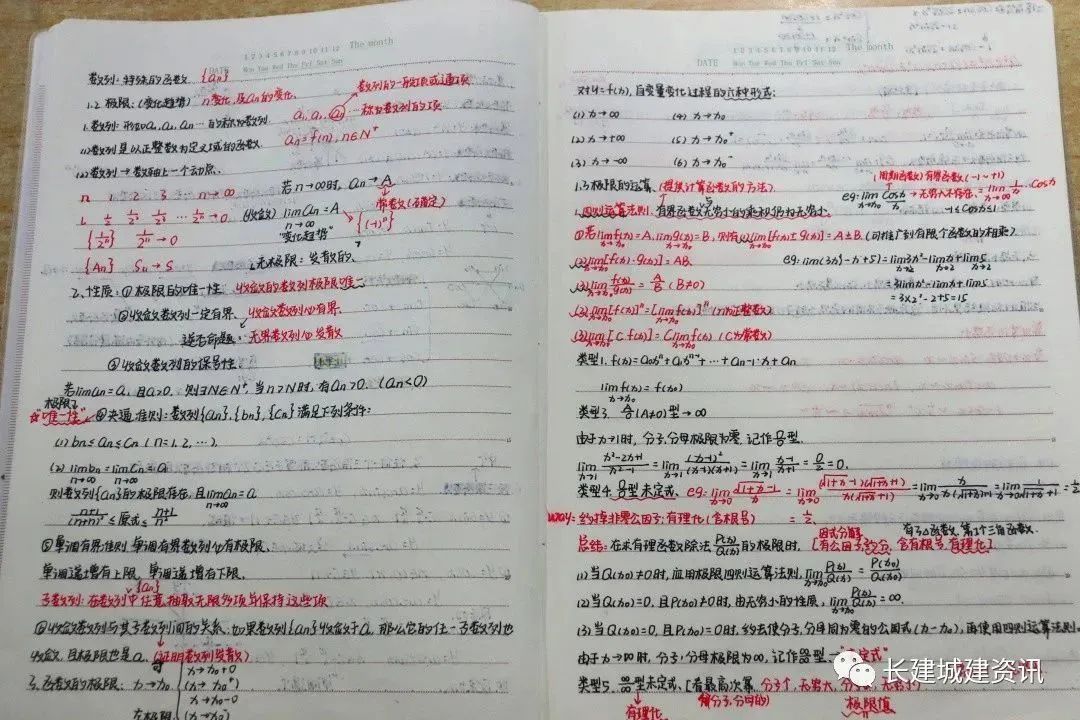 1 2 3 4 5 6 7 8 9 10 11 12 The month
DATE Mon Tue Wed Thu Fri Sat Sun
数列：特殊的函数 {an}
1.2 极限：(变化趋势) n变化，及an的变化.
数列的一般项或通项
1.数列：形如a₁, a₂, an …的称为数列.
a₁, a₂, an …称为数列的项
(1)数列是以正整数为定义域的函数. an=f(n), n∈N⁺
(2)数列→数轴上一个动点.
n 1 2 3 n→∞
若n→∞时, an→A
常数(确定)
1 1/2 1/2² 1/2³ … 1/2ⁿ→0 (收敛) lim an=A
n→∞
{1/2ⁿ} 1/2ⁿ→0 "变化趋势" {(-1)ⁿ}
{An} Sn→S 无极限：发散的.
2.性质：①极限的唯一性 收敛的数列极限唯一
②收敛数列一定有界. 收敛数列必有界.
逆否命题：无界数列必发散
③收敛数列的保号性
若lim an=a, 且a>0, 则∃N∈N⁺, 当n>N时, 有an>0. (an<0)
极限
☆"唯一性" ④夹逼准则：数列{an}, {bn}, {Cn}满足下列条件：
(1) bn≤an≤Cn (n=1, 2, …).
(2) lim bn=lim Cn=a
n→∞ n→∞
则数列{an}的极限存在, 且lim an=a
n→∞
(n+1)/(n+n)² ≤原式≤ (n+1)/n²
⑤单调有界准则 单调有界数列必有极限.
单调递增有上限, 单调递增有下限.
子数列：在数列{an}中任意抽取无限多项与保持这些项
⑥收敛数列与其子数列间的关系. 如果数列{an}收敛于a, 那么它的任一子数列也
收敛, 且极限也是a. (证明数列发散)
3.函数的极限：x→x₀ x→x₀+0
(x→x₀⁺)
x→x₀-0
左极限 (x→x₀⁻)
1 2 3 4 5 6 7 8 9 10 11 12 The month
DATE Mon Tue Wed Thu Fri Sat Sun
对y=f(x), 自变量变化过程的六种形式：
(1) x→∞ (4) x→x₀
(2) x→+∞ (5) x→x₀⁺
(3) x→-∞ (6) x→x₀⁻
1.3极限的运算. (提供计算函数的方法)
(周期函数) 有界函数(-1~+1)
eg: lim cosx/x →无穷小不存在 = lim 1/x·cosx
-1≤cosx≤1
1.四则运算法则. 有界函数与无穷小的乘积仍为无穷小
①若lim f(x)=A, lim g(x)=B, 则有(1) lim[f(x)±g(x)]=A±B. (可推广到有限个函数的相乘)
(2) lim[f(x)·g(x)]=AB. eg: lim(3x²-x+5)=lim3x²-limx+lim5
(3) lim f(x)/g(x)=A/B (B≠0) =3limx²-limx+lim5
=3×2²-2+5=15
(2) lim[f(x)]ⁿ=[lim f(x)]ⁿ (n为正整数)
(3) lim[C f(x)]=C lim f(x) (C为常数)
类型1. f(x)=a₀xⁿ+a₁xⁿ⁻¹+…+an-1·x+an
lim f(x)=f(x₀)
x→x₀
类型3. A/0 (A≠0)型→∞
由于x→1时, 分子,分母极限为零, 记作0/0型.
lim (x²-2x+1)/(x²-1)=lim (x-1)²/((x-1)(x+1))=lim (x-1)/(x+1)=0/2=0.
类型4. 0/0型未定式. eg: lim (√(1+x)-1)/x=lim (√(1+x)-1)(√(1+x)+1)/(x(√(1+x)+1))=lim x/(x(√(1+x)+1))=lim 1/(√(1+x)+1)=1/2
way: 约掉非零公因子; 有理化(含根号) =1/2.
因式分解
总结：在求有理函数除法P(x)/Q(x)的极限时. [有公因子,约分, 含有根号,有理化].
(1)当Q(x₀)≠0时, 应用极限四则运算法则, lim P(x)/Q(x)=P(x₀)/Q(x₀)
(2)当Q(x₀)=0, 且P(x₀)≠0时, 由无穷小的性质, lim P(x)/Q(x)=∞.
(3)当Q(x₀)=0, 且P(x₀)=0时, 约去使分子,分母同为零的公因式(x-x₀), 再使用四则运算法则.
由于x→∞时, 分子,分母极限为∞, 记作∞/∞型—"未定式"
类型5. ∞/∞型未定式.
有理化
极限值
长建城建资讯